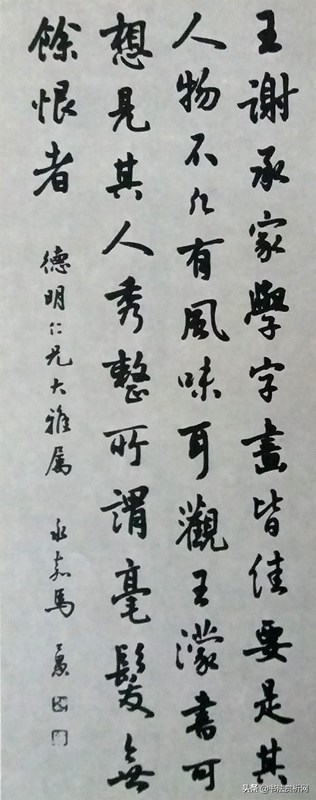 王謝承家學字畫皆佳要是其
人物不凡有風味耳觀王濛書可
想見其人秀整所謂毫髮無
餘恨者
德明仁兄大雅屬 永嘉馬公愚
头条 @书法赏析网